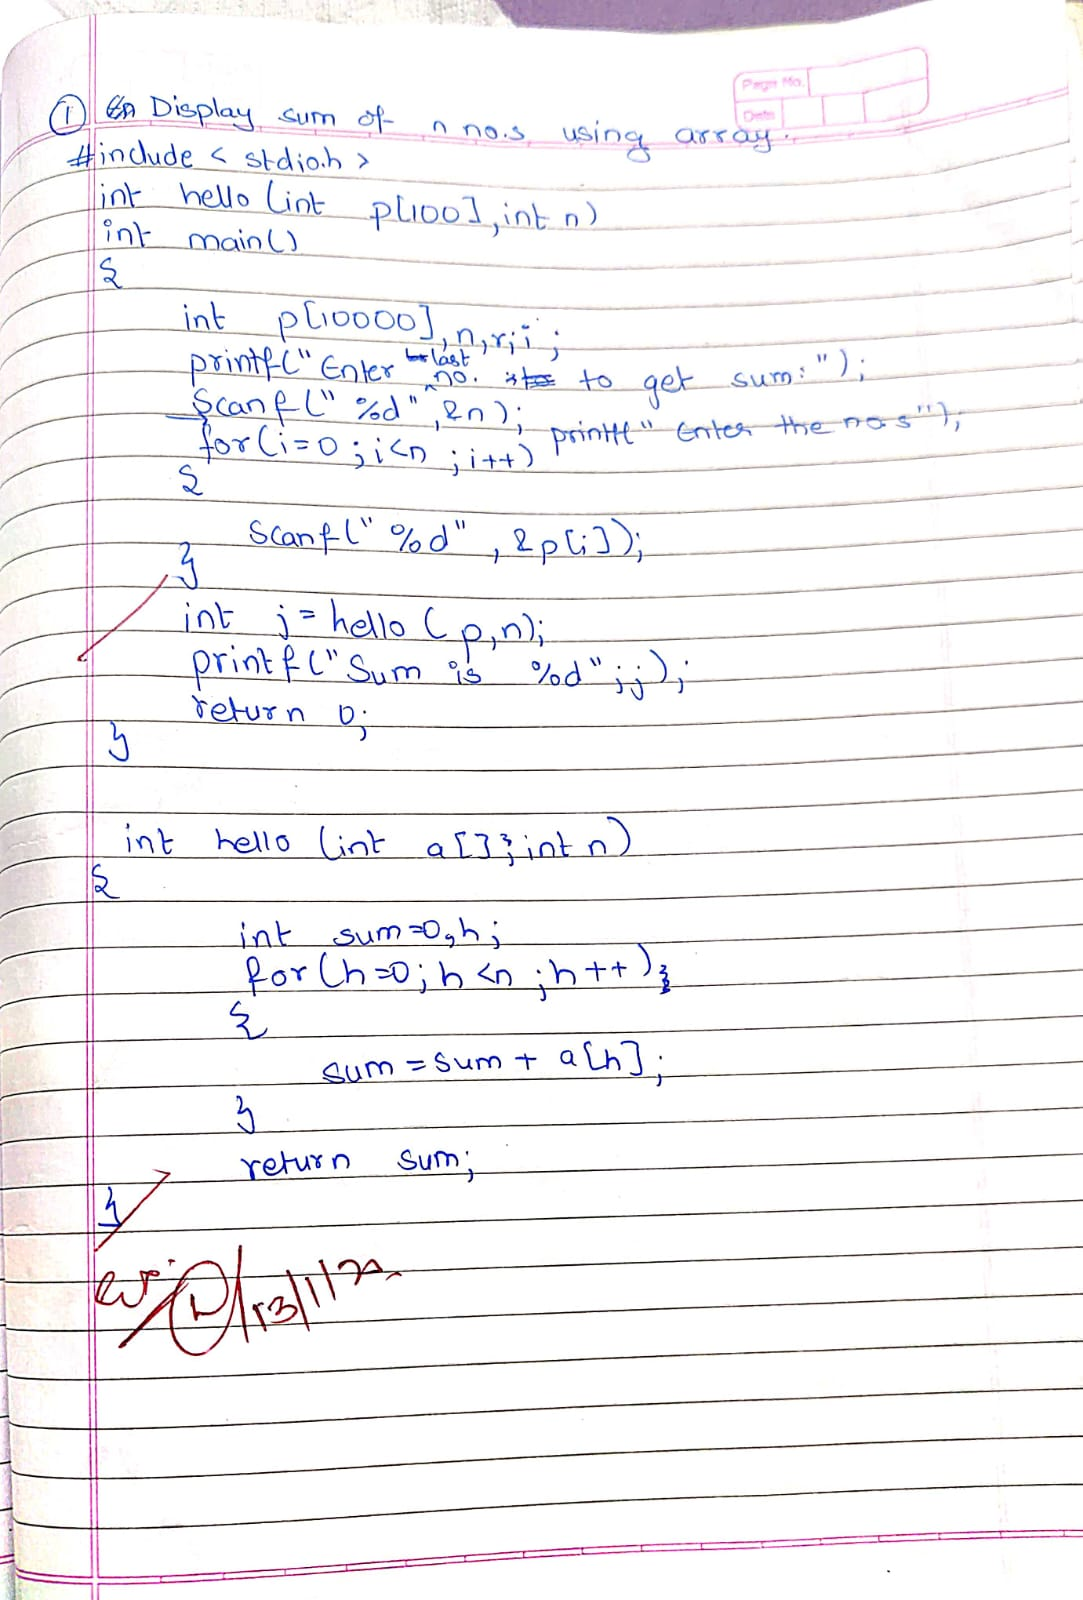 Page No.
Date
① Display sum of n no.s using array.
#include < stdio.h >
int hello (int p[100], int n)
int main()
{
int p[10000], n, r, i ;
printf(" Enter last no. to get sum: ");
Scanf(" %d", &n); printf(" Enter the nos");
for(i=0 ; i<n ; i++)
{
Scanf(" %d" , &p[i]);
}
int j = hello ( p,n);
printf(" Sum is %d" ; j);
return 0;
}
int hello (int a[] ; int n)
{
int sum=0, h ;
for(h=0 ; h <n ; h++)
{
sum = sum + a[h] ;
}
return sum;
}